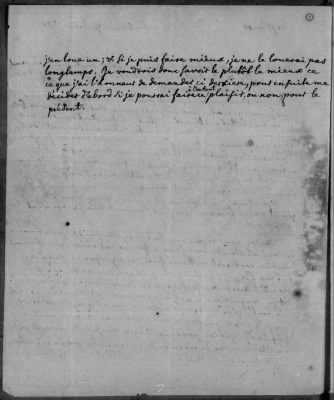 j'en loue un; & si je puis faire mieux, je ne le louerai pas
longtemps. Je voudrois donc savoir le plutôt le mieux ce
ce que j'ai l'honneur de demander ci derriere, pour ensuite me
décider d'abord si je pourrai faire ce plaisir, ou non, pour le
présent.